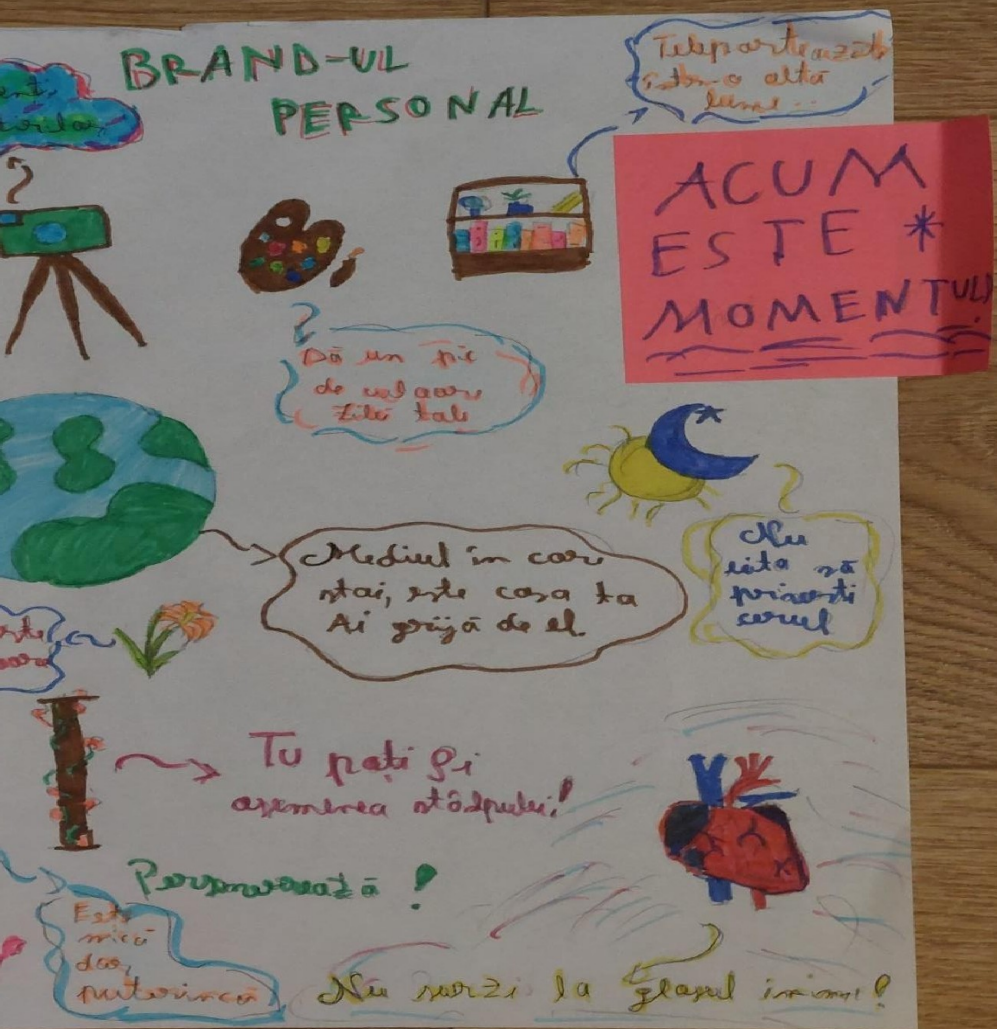 BRAND-UL
PERSONAL
Teleportează
într-o altă
lume...
ACUM
ESTE *
MOMENTUL!
Dă un pic
de culoare
zilei tale
Mediul în care
stai, este casa ta
Ai grijă de el.
Nu
uita să
privești
cerul
Tu poți fi
asemenea stâlpului!
Perseverează!
Este
mică
dar,
puternică
Nu surzi la glasul inimii!